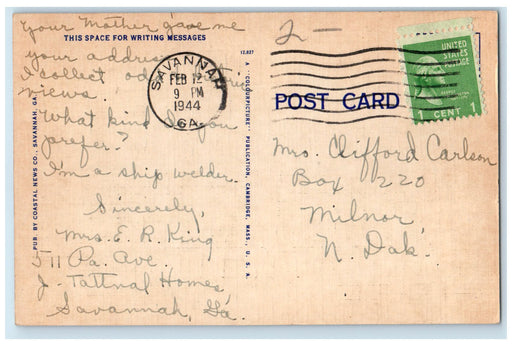 Your Mother gave me
THIS SPACE FOR WRITING MESSAGES
your address
I collect od
views.
What kind do you
prefer?
I'm a ship welder.
Sincerely,
Mrs. E. R. King
511 Pa. Ave.
J. Tattnal Homes
Savannah, Ga.
PUB. BY COASTAL NEWS CO., SAVANNAH, GA.
12,827
A "COLOURPICTURE" PUBLICATION, CAMBRIDGE, MASS., U. S. A.
SAVANNAH
FEB 12
9 PM
1944
GA.
2-
POST CARD
UNITED
STATES
POSTAGE
1 CENT 1
Mrs. Clifford Carlson
Box 220
Milnor
N. Dak.